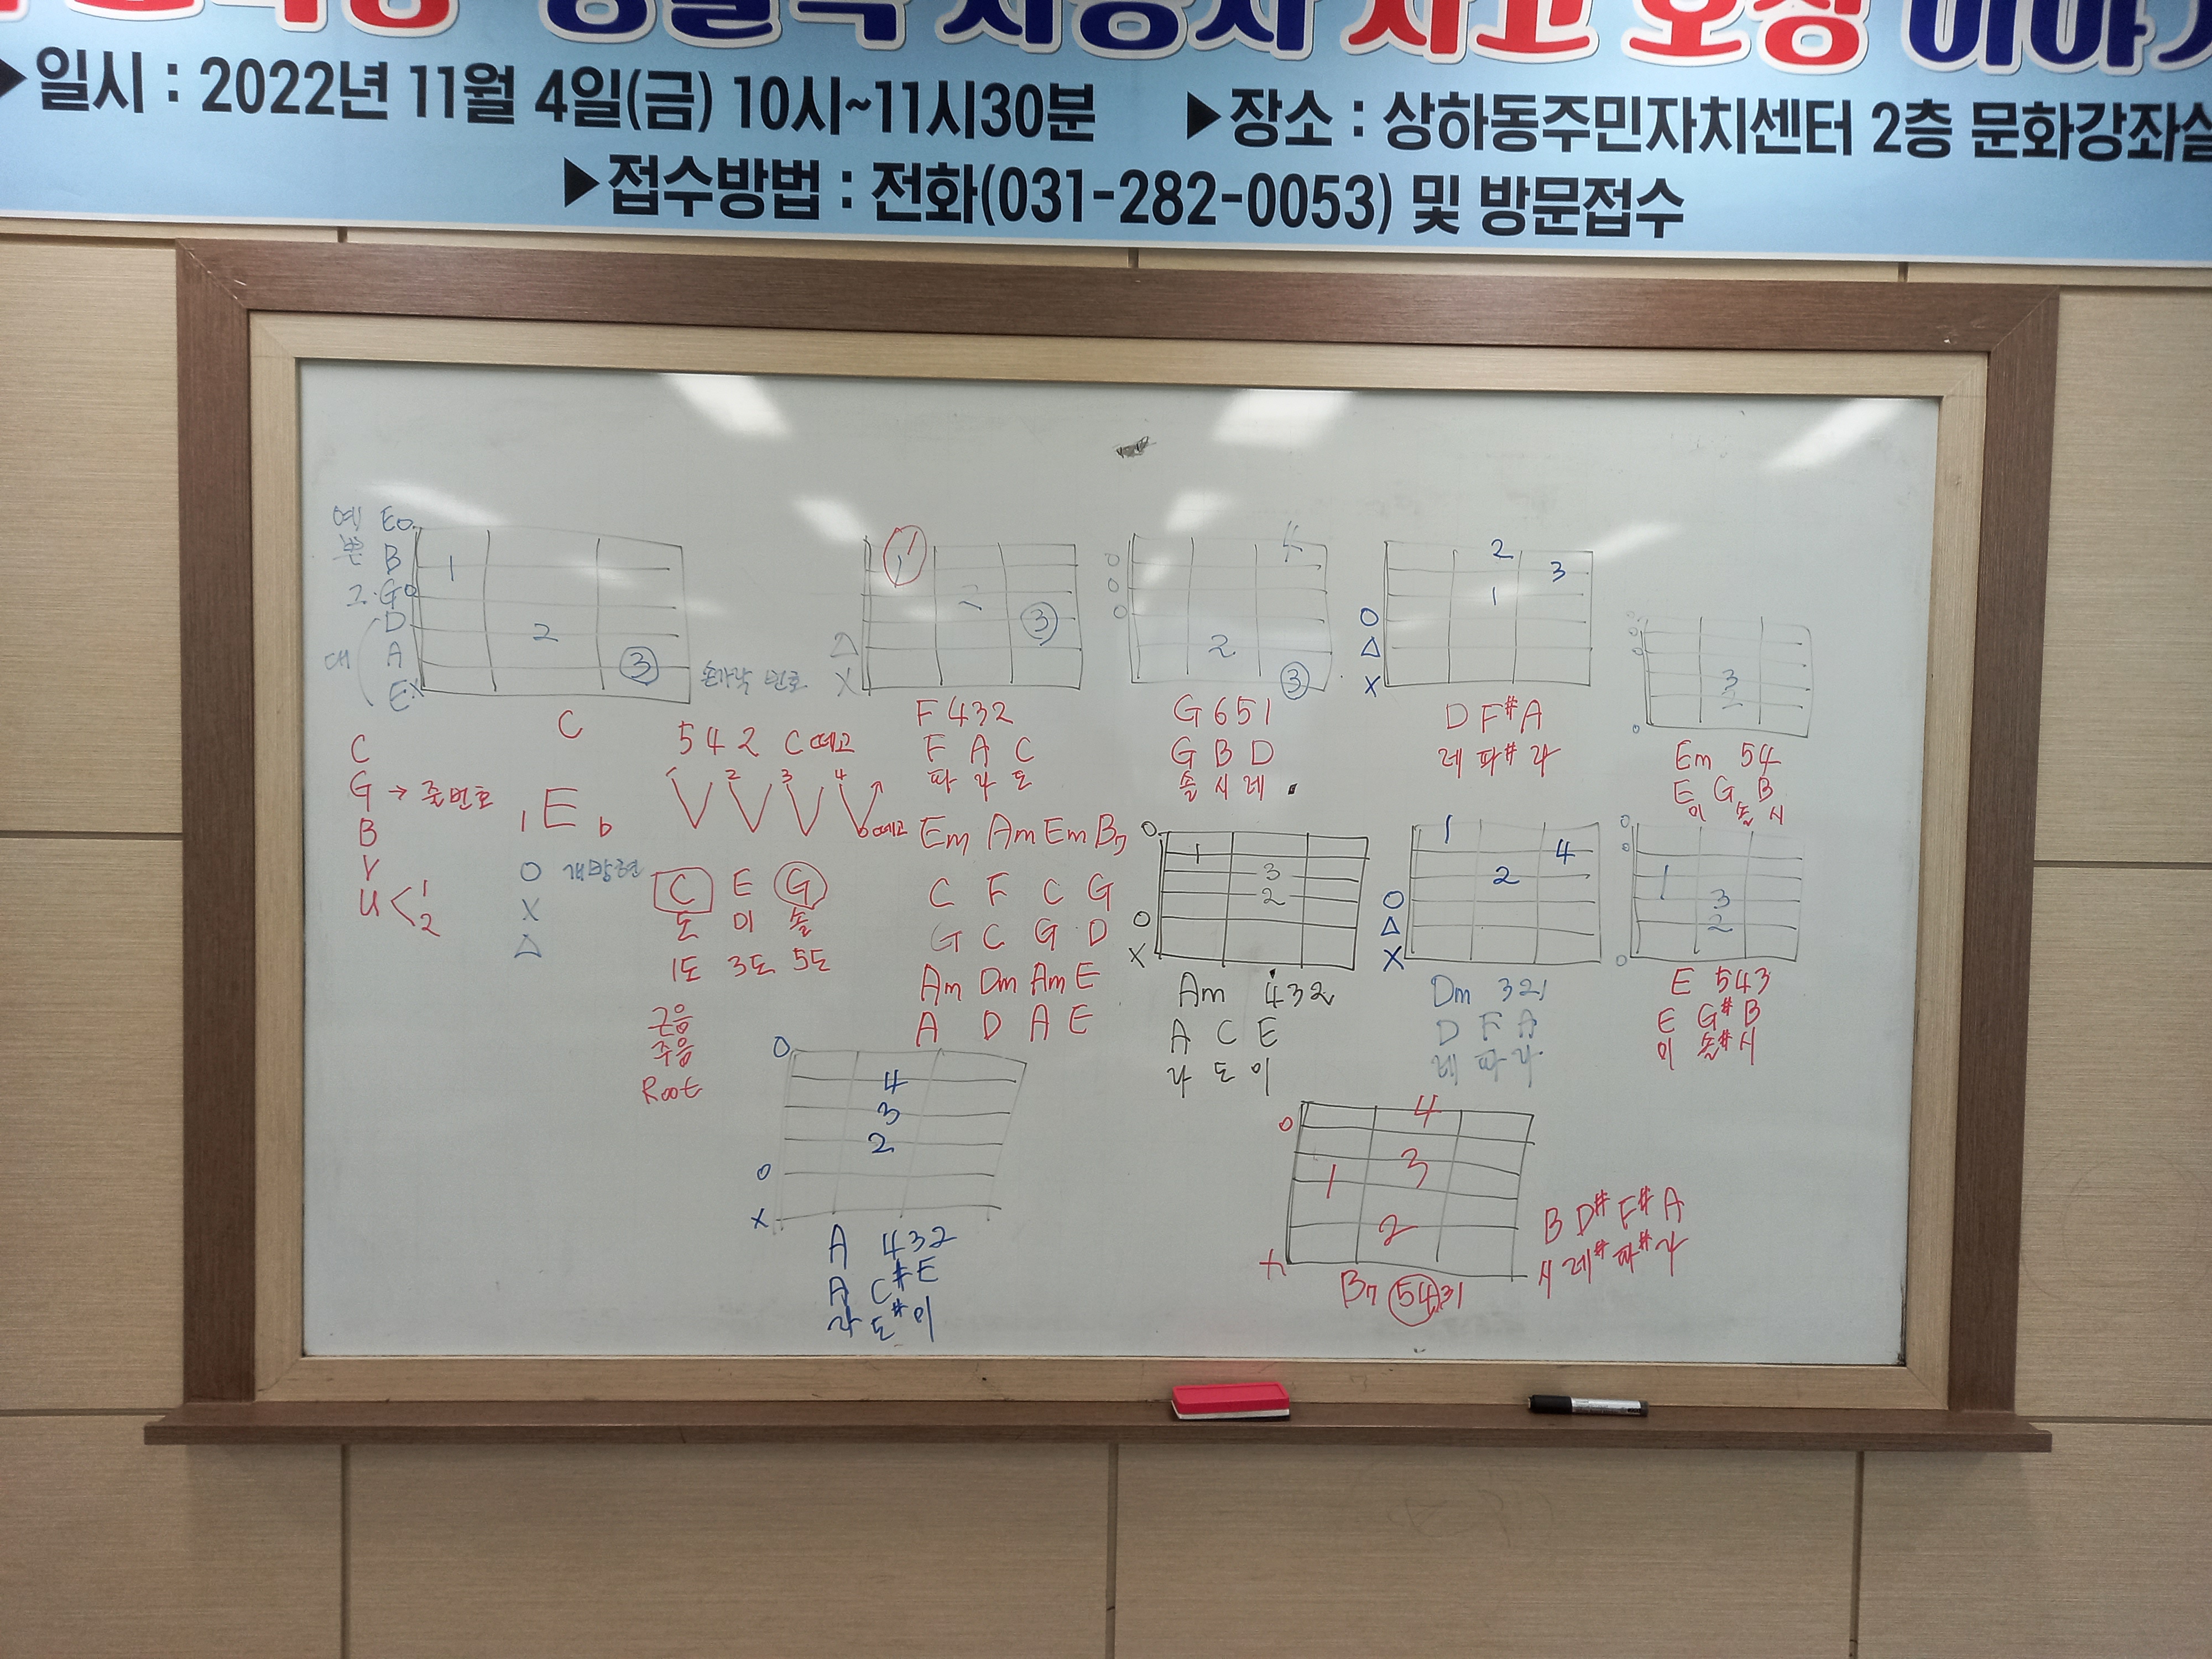 자동차 사고 보상 이야기
▶일시 : 2022년 11월 4일(금) 10시~11시30분 ▶장소 : 상하동주민자치센터 2층 문화강좌실
▶접수방법 : 전화(031-282-0053) 및 방문접수
예 E o
쁜 B 1
그 G o
D 2
대 A 3
E x
손가락 번호
C
1
2
3
△
X
F 432
F A C
파 라 도
o
o
o
4
2
3
G 651
G B D
솔 시 레
2
3
1
O
△
X
D F# A
레 파# 라
o
o
o
3
2
o
Em 54
E G B
미 솔 시
C
G → 줄번호
B
V
U < 1
2
1 E 6
O 개방현
X
△
5 4 2 C 떼고
1 2 3 4
떼고
C E G
도 미 솔
1도 3도 5도
근음
주음
Root
Em Am Em B7
C F C G
G C G D
Am Dm Am E
A D A E
O
1
3
2
O
X
Am 432
A C E
라 도 미
1
4
2
O
△
X
Dm 321
D F A
레 파 라
o
o
1
3
2
o
E 543
E G# B
미 솔# 시
O
4
3
2
o
x
A 432
A C# E
라 도# 미
4
o
3
1
2
X
B7 5431
B D# F# A
시 레# 파# 라